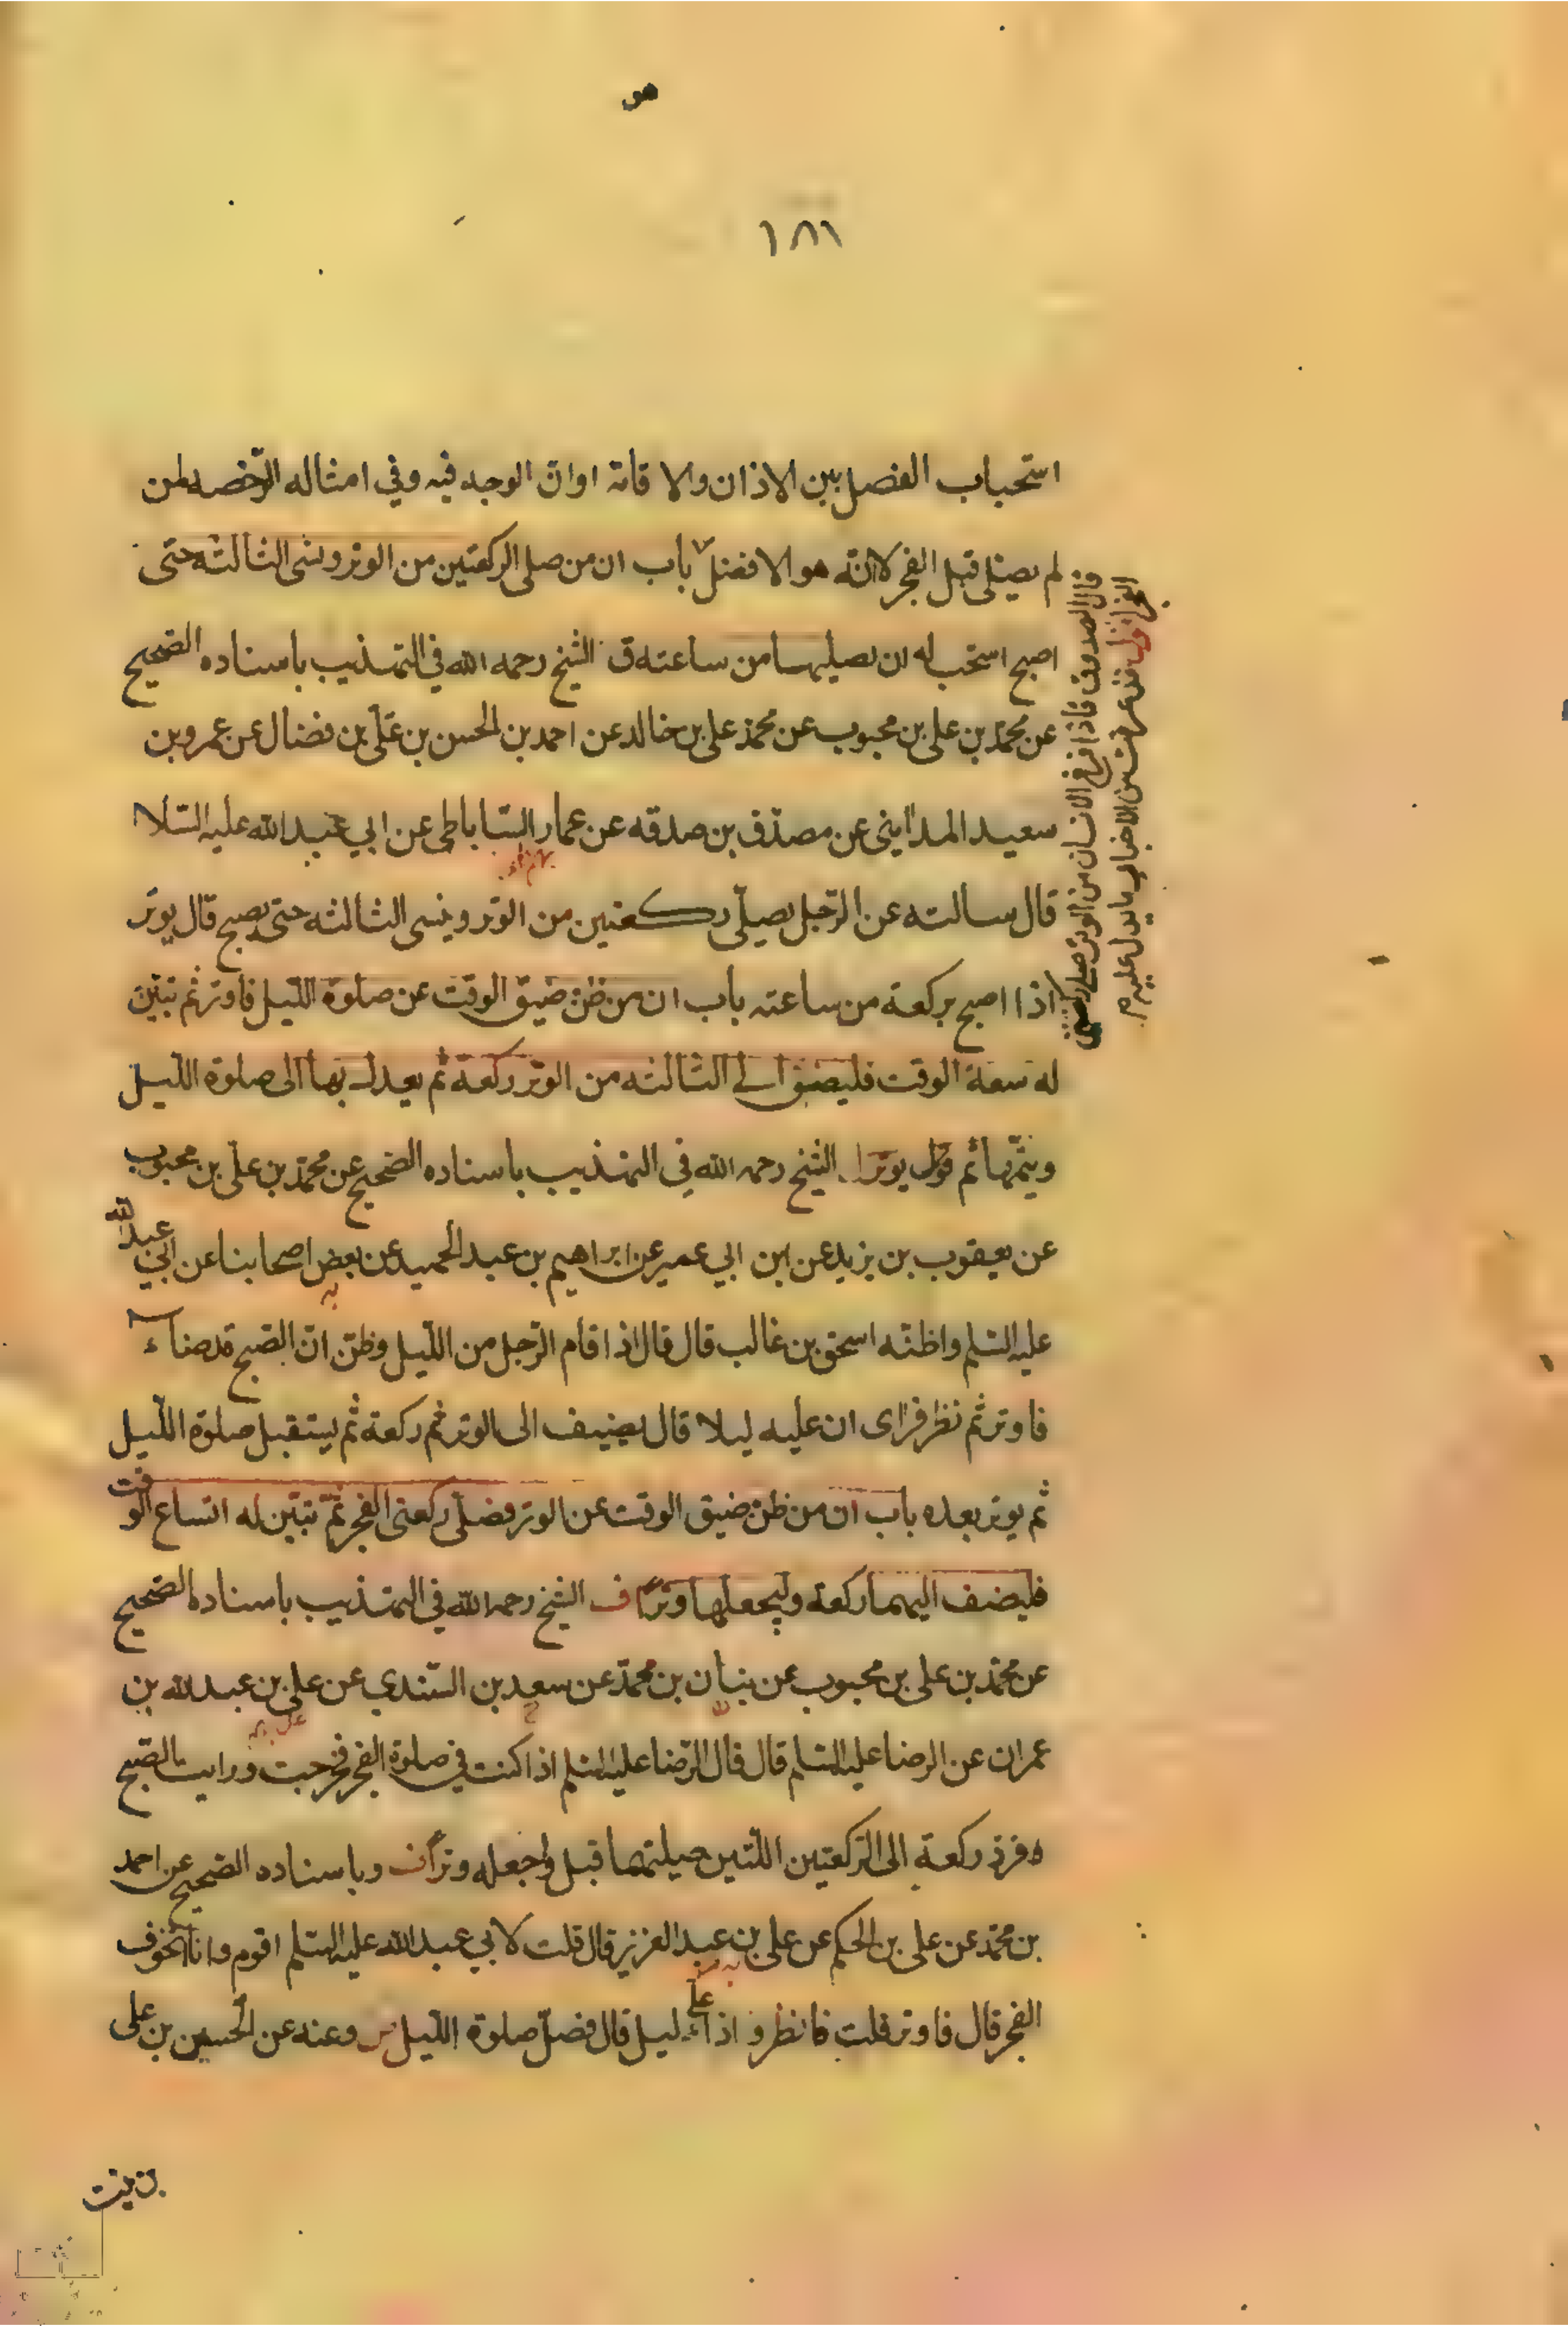 هو
١٨١
استحباب الفصل بين الاذان والاقامة او ان الوجه فيه وفي امثاله الرخصه لمن
لم يصلى قبل الفجر لانّه هو الافضل باب ان من صلى الركعتين من الوتر ونسى الثالثه حتى
اصبح استحب له ان يصليها من ساعته ق الشيخ رحمه الله في التهذيب باسناده الصحيح
عن محمّد بن على بن محبوب عن محمّد على بن خالد عن احمد بن الحسن بن علّى بن فضال عن عمرو بن
سعيد المدايني عن مصدّق بن صدقه عن عمار السّاباطى عن ابي عبد الله عليه السّلا
قال سالته عن الرّجل يصلّى ركعتين من الوتر وينسى الثالثه حتى يصبح قال يوتر
اذا اصبح بركعة من ساعته باب ان من ظنّ ضيق الوقت عن صلوة اللّيل فاوتر ثم تبيّن
له سعة الوقت فليضف الى الثالثه من الوتر ركعة ثم يعدل بها الى صلوة اللّيل
ويتمّها ثم يوتر الشيخ رحمه الله في التهذيب باسناده الصحيح عن محمّد بن على بن محبوب
عن يعقوب بن يزيد عن ابن ابي عمير عن ابراهيم بن عبد الحميد عن بعض اصحابنا عن ابي عبد الله
عليه السّلم واظنّه اسحق بن غالب قال قال اذا قام الرّجل من اللّيل وظنّ انّ الصّبح قد ضاء
فاوتر ثم نظر فراى ان عليه ليلا قال يضيف الى الوتر ثم ركعة ثم يستقبل صلوة اللّيل
ثم يوتر بعده باب ان من ظنّ ضيق الوقت عن الوتر فصلّى ركعتى الفجر ثمّ تبيّن له اتساع الوقت
فليضف اليهما ركعة وليجعلها وتراً ف الشيخ رحمه الله في التهذيب باسناده الصحيح
عن محمّد بن على بن محبوب عن بنان بن محمّد عن سعد بن السّندي عن على بن عبد الله بن
عمران عن الرضا عليه السّلم قال قال الرّضا عليه السّلم اذا كنت في صلوة الفجر فخرجت ورايت الصّبح
فزد ركعة الى الرّكعتين اللّتين صليتهما قبل واجعله وتراً ف وباسناده الصحيح عن احمد
بن محمّد عن على بن الحكم عن على بن عبد العزيز قال قلت لابي عبد الله عليه السّلم اقوم وانا اتخوف
الفجر قال فاوتر قلت فانظر و اذا علّى ليل قال فصلّ صلوة اللّيل س وعنه عن الحسين بن على
قال الصدوق فاذا فرغ الانسان من الوتر صلى ركعتي
الفجر اقول قد عرفت من الاخبار ما يدل عليه م
بن بنت